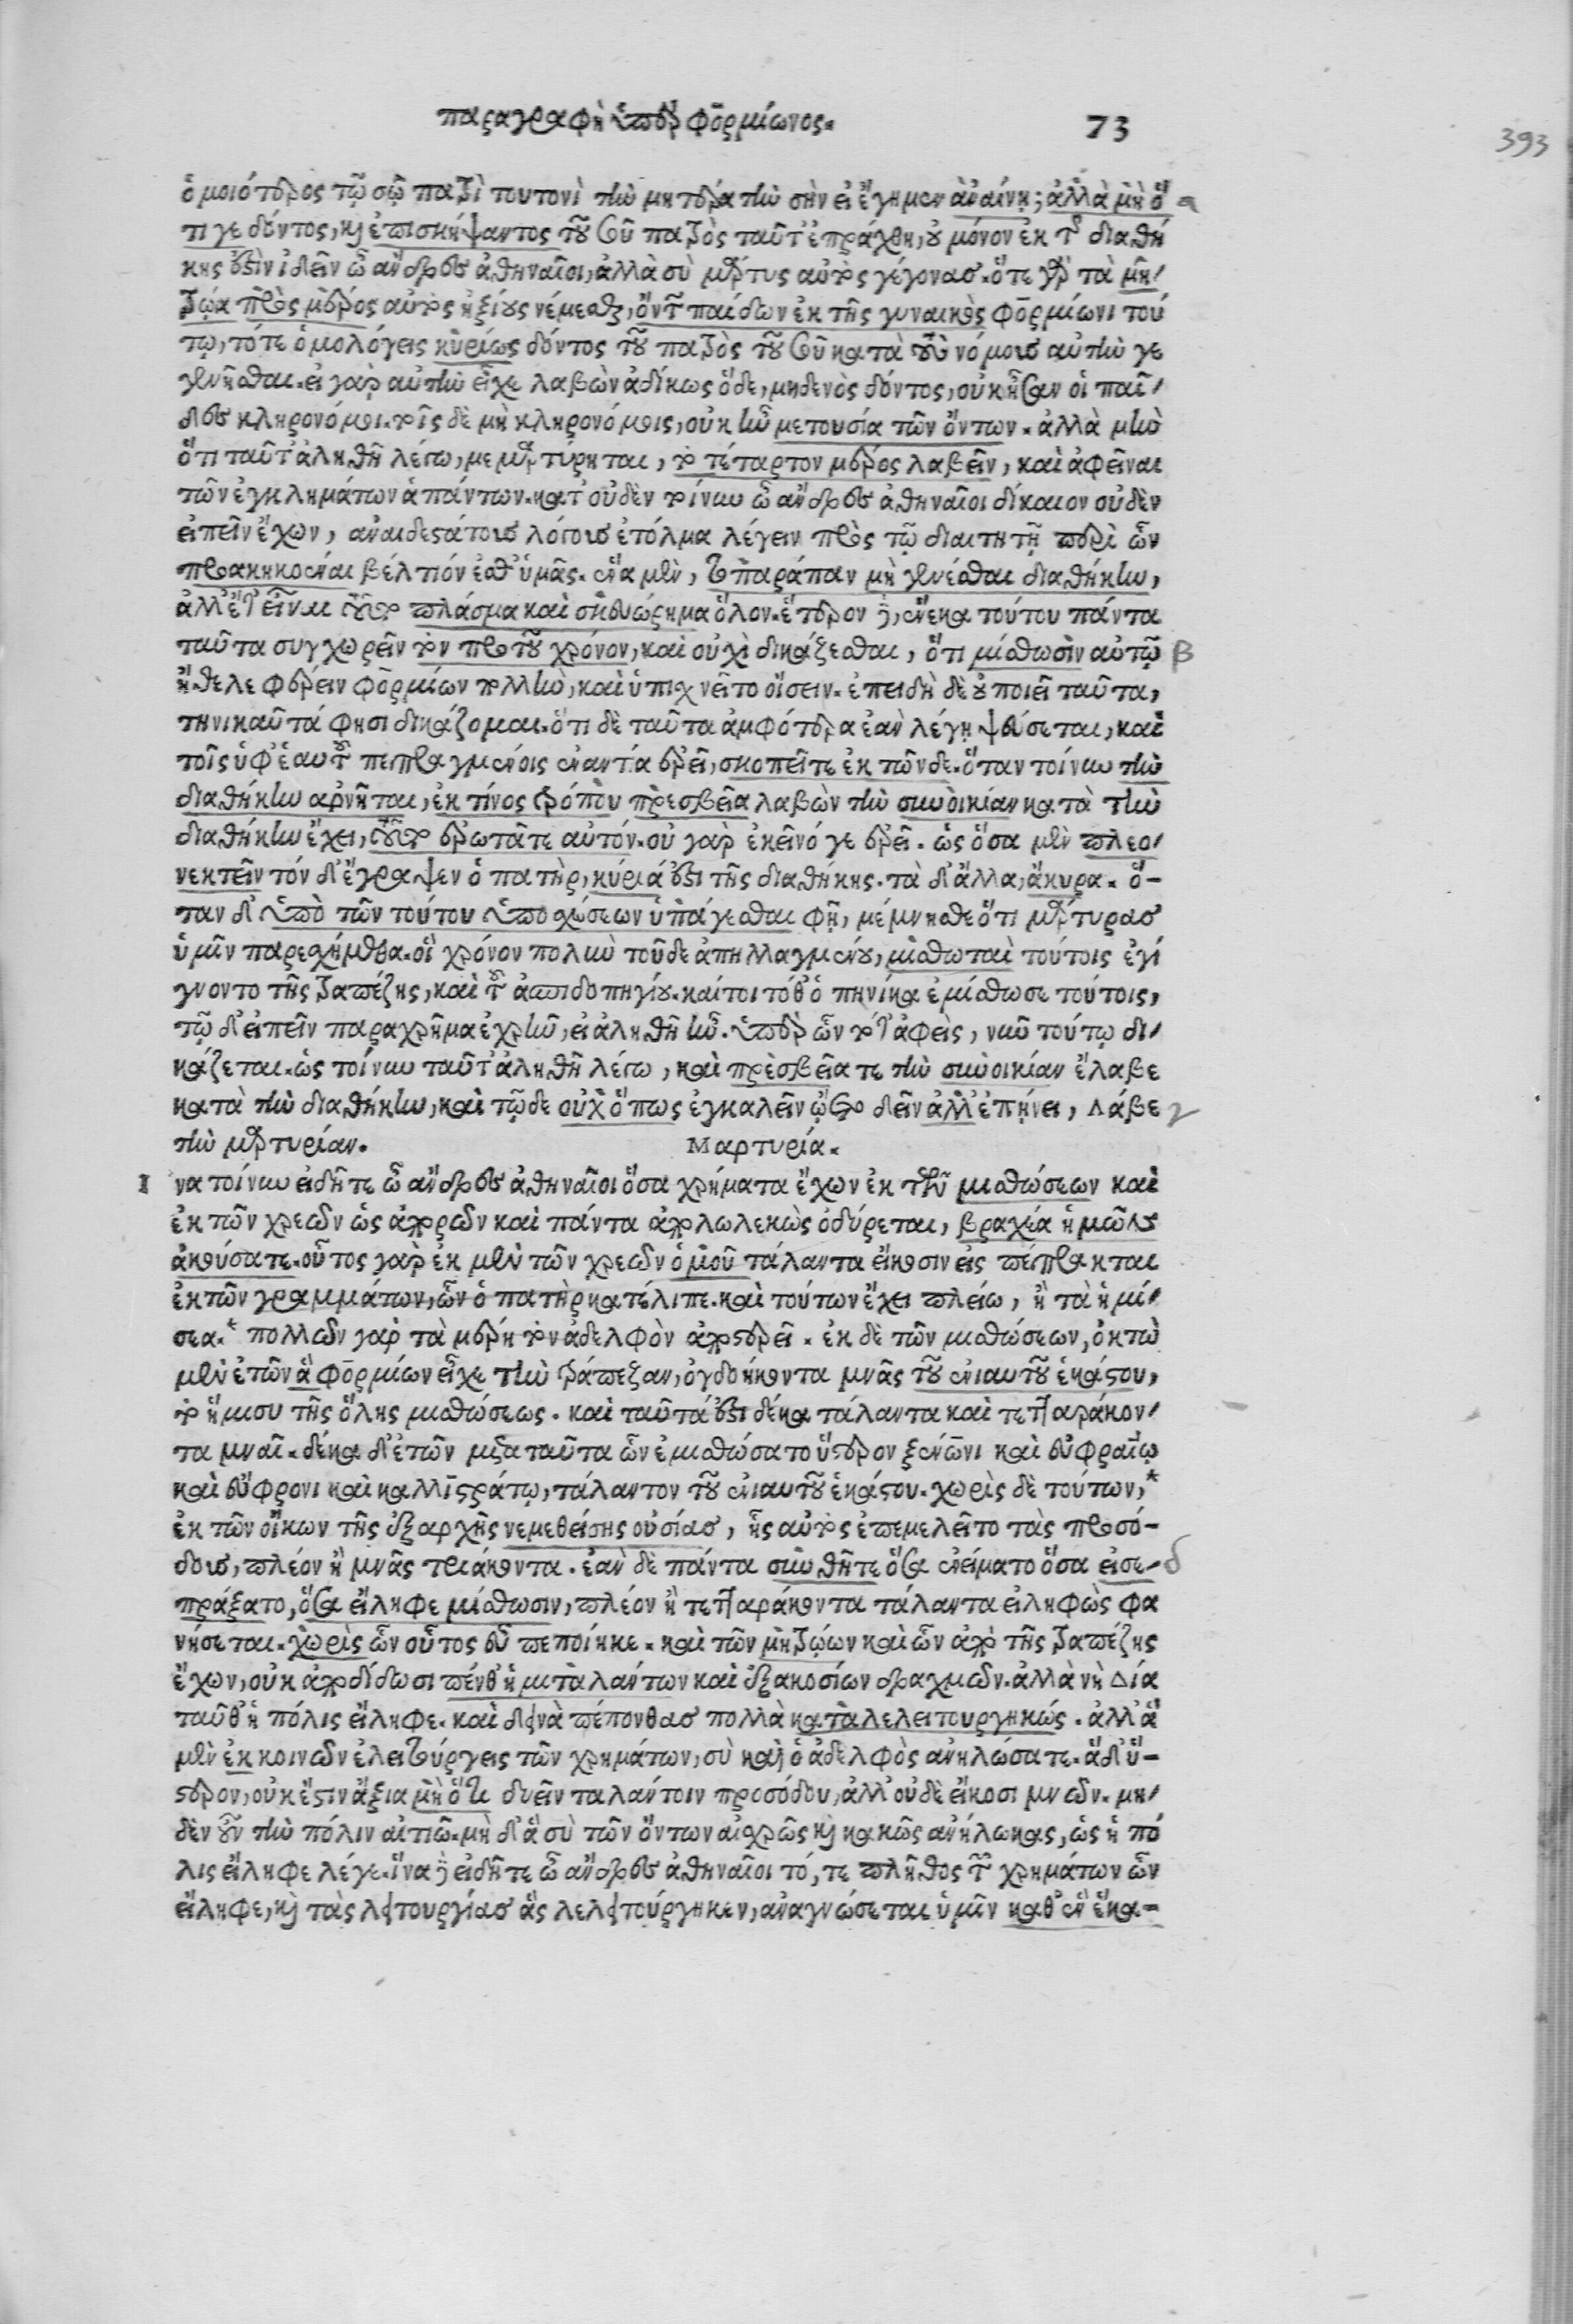 παραγραφὴ ὑπὲρ φορμίωνος. 73
393
ὁμοιότερος τῷ σῷ πατρὶ τουτονὶ τὴν μητέρα τὴν σὴν εἰ ἔγημεν ἀναίνῃ; ἀλλὰ μὴ ὅ a
τι γε δόντος, καὶ ἐπισκήψαντος τοῦ σοῦ πατρὸς ταῦτ' ἐπράχθη, οὐ μόνον ἐκ τῆς διαθή
κης ἐστὶν ἰδεῖν ὦ ἄνδρες ἀθηναῖοι, ἀλλὰ σὺ μάρτυς αὐτὸς γέγονας. ὅτε γὰρ τὰ μη/
τρῷα πρὸς μέρος αὐτὸς ἠξίους νέμεσθαι, ὄντων παίδων ἐκ τῆς γυναικὸς φορμίωνι τού
τῳ, τότε ὁμολόγεις κυρίως δόντος τοῦ πατρὸς τοῦ σοῦ κατὰ τοὺς νόμους αὐτὴν γε
γενῆσθαι. εἰ γὰρ αὐτὴν εἶχε λαβὼν ἀδίκως ὅδε, μηδενὸς δόντος, οὐκ ἦσαν οἱ παῖ/
δες κληρονόμοι. τοῖς δὲ μὴ κληρονόμοις, οὐκ ἦν μετουσία τῶν ὄντων. ἀλλὰ μὴν
ὅτι ταῦτ' ἀληθῆ λέγω, μεμαρτύρηται, τὸ τέταρτον μέρος λαβεῖν, καὶ ἀφεῖναι
τῶν ἐγκλημάτων ἁπάντων. κατ' οὐδὲν τοίνυν ὦ ἄνδρες ἀθηναῖοι δίκαιον οὐδὲν
εἰπεῖν ἔχων, ἀναιδεστάτους λόγους ἐτόλμα λέγειν πρὸς τῷ διαιτητῇ περὶ ὧν
προακηκοέναι βέλτιόν ἐσθ' ὑμᾶς. ἕνα μὲν, τὸ παράπαν μὴ γενέσθαι διαθήκην,
ἀλλ' εἶναι τοῦτο πλάσμα καὶ σκευώρημα ὅλον. ἕτερον δὲ, ἕνεκα τούτου πάντα
ταῦτα συγχωρεῖν τὸν πρὸ τοῦ χρόνον, καὶ οὐχὶ δικάζεσθαι, ὅτι μίσθωσιν αὐτῷ β
ἤθελε φέρειν φορμίων πολλὴν, καὶ ὑπισχνεῖτο οἴσειν. ἐπειδὴ δὲ οὐ ποιεῖ ταῦτα,
τηνικαῦτά φησι δικάζομαι. ὅτι δὲ ταῦτα ἀμφότερα ἐὰν λέγῃ ψεύσεται, καὶ
τοῖς ὑφ' ἑαυτοῦ πεπραγμένοις ἐναντία ἐρεῖ, σκοπεῖτε ἐκ τῶνδε. ὅταν τοίνυν τὴν
διαθήκην ἀρνῆται, ἐκ τίνος τρόπου πρεσβεῖα λαβὼν τὴν συνοικίαν κατὰ τὴν
διαθήκην ἔχει, τοῦτο ἐρωτᾶτε αὐτόν. οὐ γὰρ ἐκεῖνό γε ἐρεῖ. ὡς ὅσα μὲν πλεο/
νεκτεῖν τόν δ' ἔγραψεν ὁ πατὴρ, κύριά ἐστι τῆς διαθήκης. τὰ δ' ἄλλα, ἄκυρα. ὅ-
ταν δ' ὑπὸ τῶν τούτου ὑποσχέσεων ὑπάγεσθαι φῇ, μέμνησθε ὅτι μάρτυρας
ὑμῖν παρεσχήμεθα. οἳ χρόνον πολὺν τοῦδε ἀπηλλαγμένου, μισθωταὶ τούτοις ἐγί
γνοντο τῆς τραπέζης, καὶ τοῦ ἀσπιδοπηγίου. καίτοι τόθ' ὁπηνίκα ἐμίσθωσε τούτοις,
τῷ δ' εἰπεῖν παραχρῆμα ἐχρῆν, εἰ ἀληθῆ ἦν. ὑπὲρ ὧν τότ' ἀφεὶς, νῦν τούτῳ δι/
κάζεται. ὡς τοίνυν ταῦτ' ἀληθῆ λέγω, καὶ πρεσβεῖα τε τὴν συνοικίαν ἔλαβε
κατὰ τὴν διαθήκην, καὶ τῷδε οὐχ ὅπως ἐγκαλεῖν ᾤετο δεῖν ἀλλ' ἐπῄνει, Λάβε γ
τὴν μαρτυρίαν. Μαρτυρία.
Ι να τοίνυν εἰδῆτε ὦ ἄνδρες ἀθηναῖοι ὅσα χρήματα ἔχων ἐκ τῶν μισθώσεων καὶ
ἐκ τῶν χρεῶν ὡς ἀπορῶν καὶ πάντα ἀπολωλεκὼς ὀδύρεται, βραχέα ἡμῶν
ἀκούσατε. οὗτος γὰρ ἐκ μὲν τῶν χρεῶν ὁμοῦ τάλαντα εἴκοσιν εἰς πέπρακται
ἐκ τῶν γραμμάτων, ὧν ὁ πατὴρ κατέλιπε. καὶ τούτων ἔχει πλείω, ἢ τὰ ἡμί/
σεα.* πολλῶν γὰρ τὰ μέρη τὸν ἀδελφὸν ἀποστερεῖ. ἐκ δὲ τῶν μισθώσεων, ὀκτὼ
μὲν ἐτῶν ἃ φορμίων εἶχε τὴν τράπεζαν, ὀγδοήκοντα μνᾶς τοῦ ἐνιαυτοῦ ἑκάστου,
τὸ ἥμισυ τῆς ὅλης μισθώσεως. καὶ ταῦτά ἐστι δέκα τάλαντα καὶ τετταράκον/
τα μναῖ. δέκα δ' ἐτῶν μετὰ ταῦτα ὧν ἐμισθώσατο ὕστερον ξένωνι καὶ εὐφραίῳ
καὶ εὔφρονι καὶ καλλιστράτῳ, τάλαντον τοῦ ἐνιαυτοῦ ἑκάστου. χωρὶς δὲ τούτων,*
ἐκ τῶν οἴκων τῆς ἐξαρχῆς νεμεθείσης οὐσίας, ἧς αὐτὸς ἐπεμελεῖτο τὰς προσό-
δους, πλέον ἢ μνᾶς τριάκοντα. ἐὰν δὲ πάντα συνθῆτε ὅσα ἐνείματο ὅσα εἰσε- δ
πράξατο, ὅσα εἴληφε μίσθωσιν, πλέον ἢ τετταράκοντα τάλαντα εἰληφὼς φα
νήσεται. χωρὶς ὧν οὗτος εὖ πεποίηκε. καὶ τῶν μητρῴων καὶ ὧν ἀπὸ τῆς τραπέζης
ἔχων, οὐκ ἀποδίδωσι πένθ' ἡμιταλάντων καὶ ἑξακοσίων δραχμῶν. ἀλλὰ νὴ Δία
ταῦθ' ἡ πόλις εἴληφε. καὶ δεινὰ πέπονθας πολλὰ καταλελειτουργηκώς. ἀλλ' ἃ
μὲν ἐκ κοινῶν ἐλειτούργεις τῶν χρημάτων, σὺ καὶ ὁ ἀδελφὸς ἀνηλώσατε. ἃ δ' ὕ-
στερον, οὐκ ἔστιν ἄξια μὴ ὅτι δυεῖν ταλάντοιν προσόδου, ἀλλ' οὐδὲ εἴκοσι μνῶν. μη/
δὲν οὖν τὴν πόλιν αἰτιῶ. μὴ δ' ἃ σὺ τῶν ὄντων αἰσχρῶς καὶ κακῶς ἀνήλωκας, ὡς ἡ πό
λις εἴληφε λέγε. ἵνα δὲ εἰδῆτε ὦ ἄνδρες ἀθηναῖοι τό, τε πλῆθος τῶν χρημάτων ὧν
εἴληφε, καὶ τὰς λειτουργίας ἃς λελειτούργηκεν, ἀναγνώσεται ὑμῖν καθ' ἓν ἕκα-